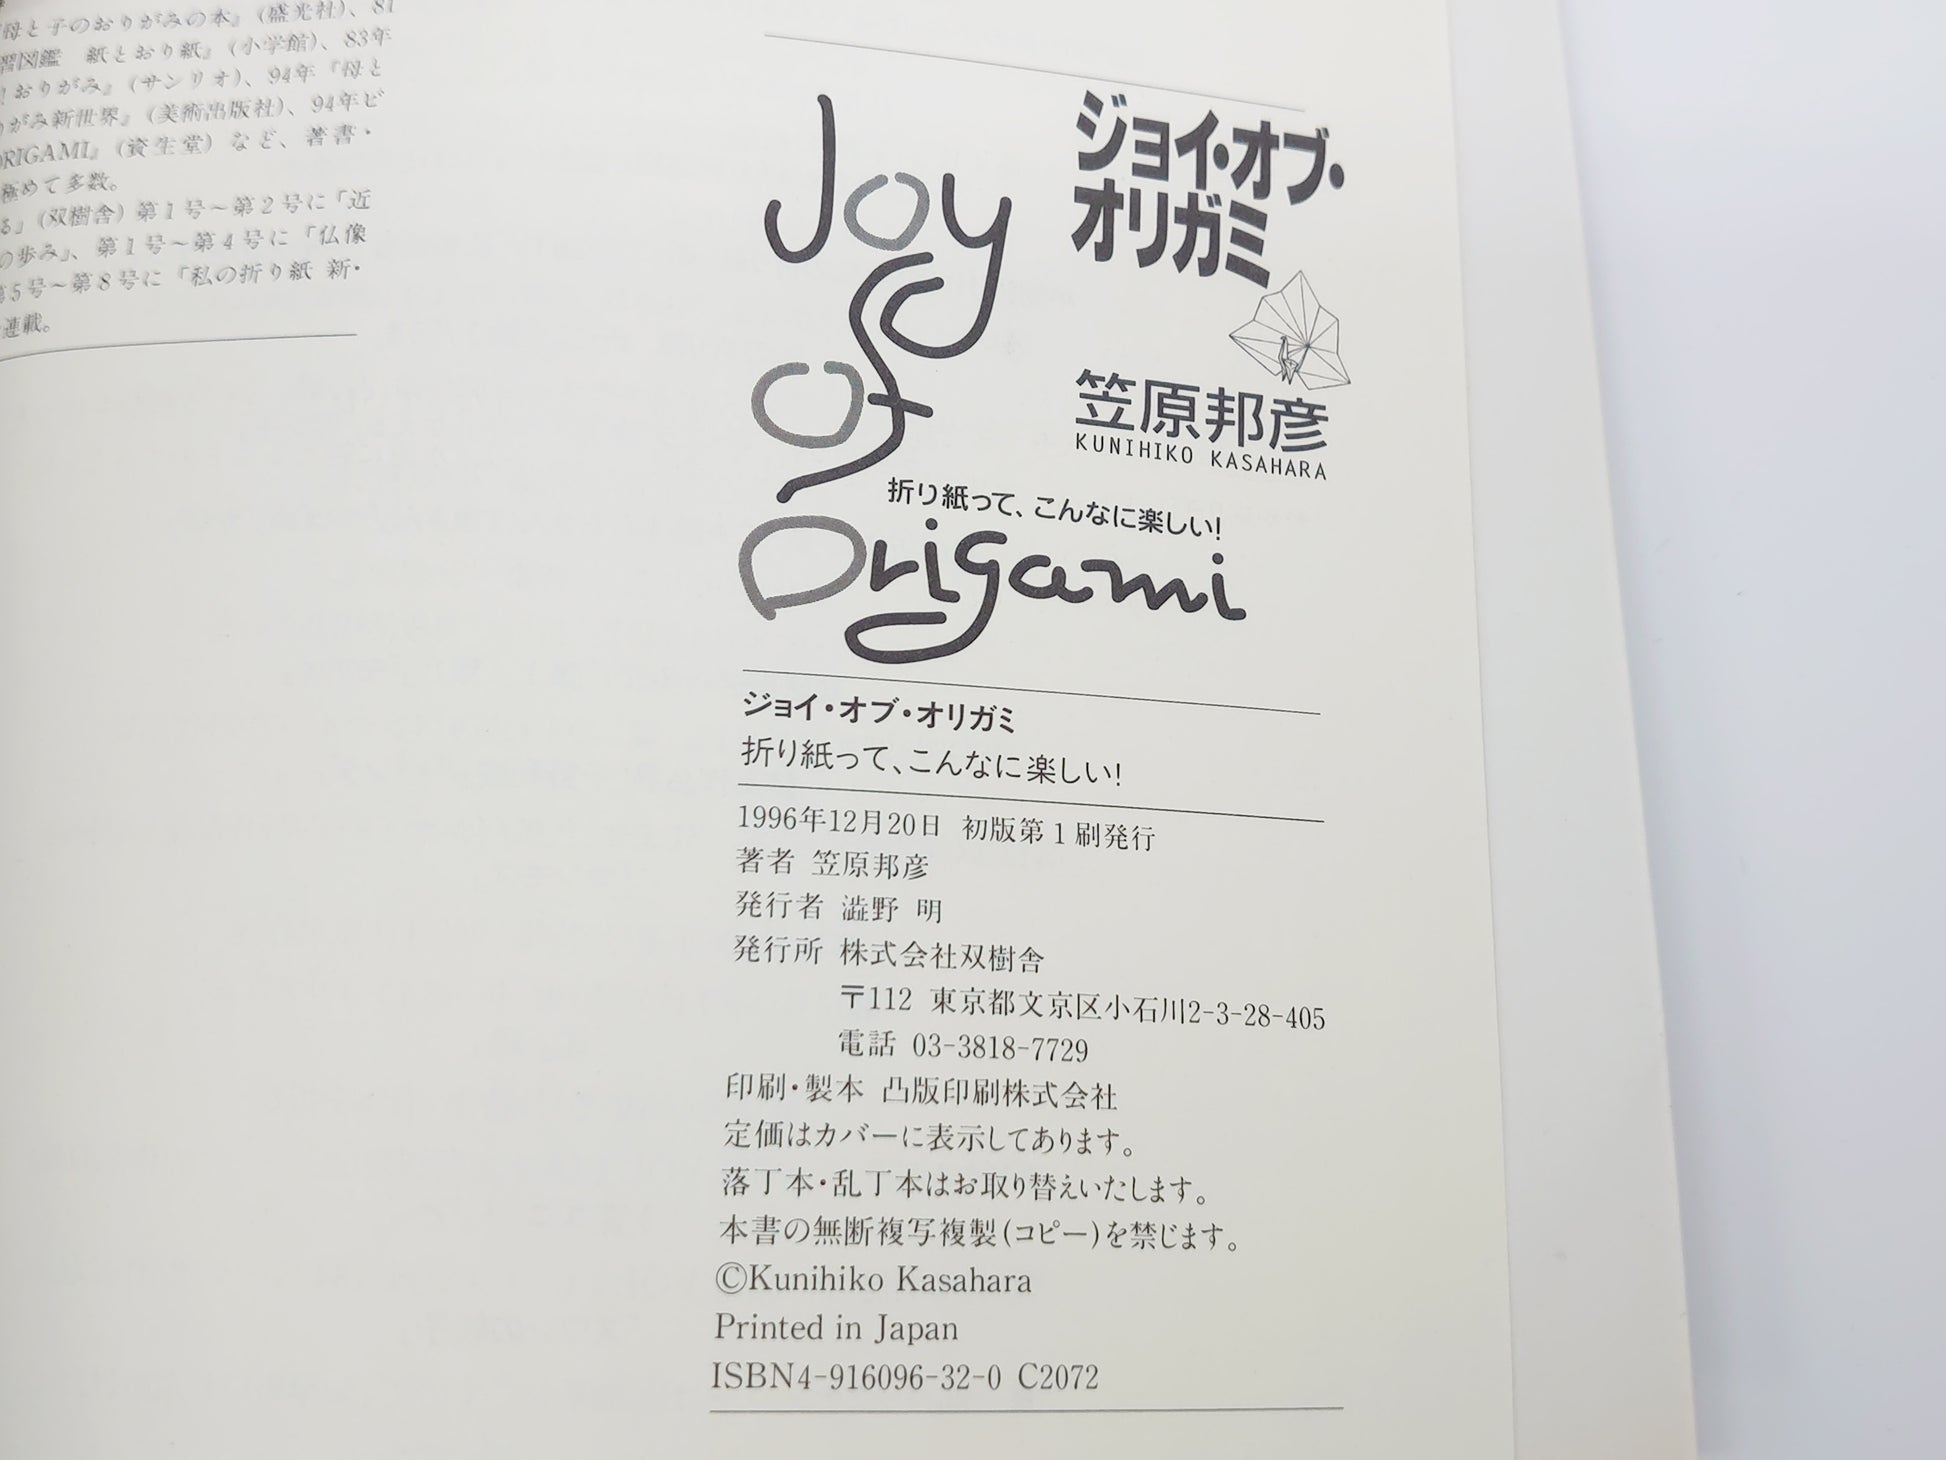 母と子のおりがみの本』(盛光社)、81
習図鑑 紙とおり紙』(小学館)、83年
!おりがみ』(サンリオ)、94年『母と
がみ新世界』(美術出版社)、94年ビ
ORIGAMI』(資生堂)など、著書・
極めて多数。
る」(双樹舎)第1号〜第2号に「近
の歩み」、第1号〜第4号に「仏像
第5号〜第8号に「私の折り紙 新・
連載。
Joy
of
Origami
ジョイ・オブ・
オリガミ
笠原邦彦
KUNIHIKO KASAHARA
折り紙って、こんなに楽しい!
ジョイ・オブ・オリガミ
折り紙って、こんなに楽しい!
1996年12月20日 初版第1刷発行
著者 笠原邦彦
発行者 澁野 明
発行所 株式会社双樹舎
〒112 東京都文京区小石川2-3-28-405
電話 03-3818-7729
印刷・製本 凸版印刷株式会社
定価はカバーに表示してあります。
落丁本・乱丁本はお取り替えいたします。
本書の無断複写複製(コピー)を禁じます。
©Kunihiko Kasahara
Printed in Japan
ISBN4-916096-32-0 C2072